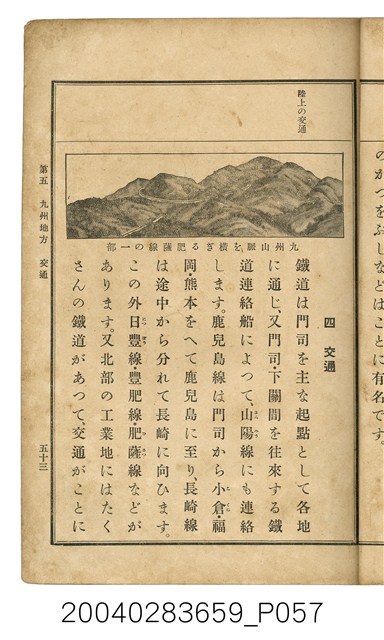 のかつをぶしなどはことに有名です。
陸上の交通
九州山脈を橫ぎる肥薩線の一部
四 交通
鐵道は門司を主な起點として各地
に通じ、又門司・下關間を往來する鐵
道連絡船によつて、山陽線にも連絡
します。鹿兒島線は門司から小倉・福
岡・熊本をへて鹿兒島に至り、長崎線
は途中から分れて長崎に向ひます。
この外日豐線・豐肥線・肥薩線などが
あります。又北部の工業地にはたく
さんの鐵道があつて、交通がことに
第五 九州地方 交通
五十三
20040283659_P057